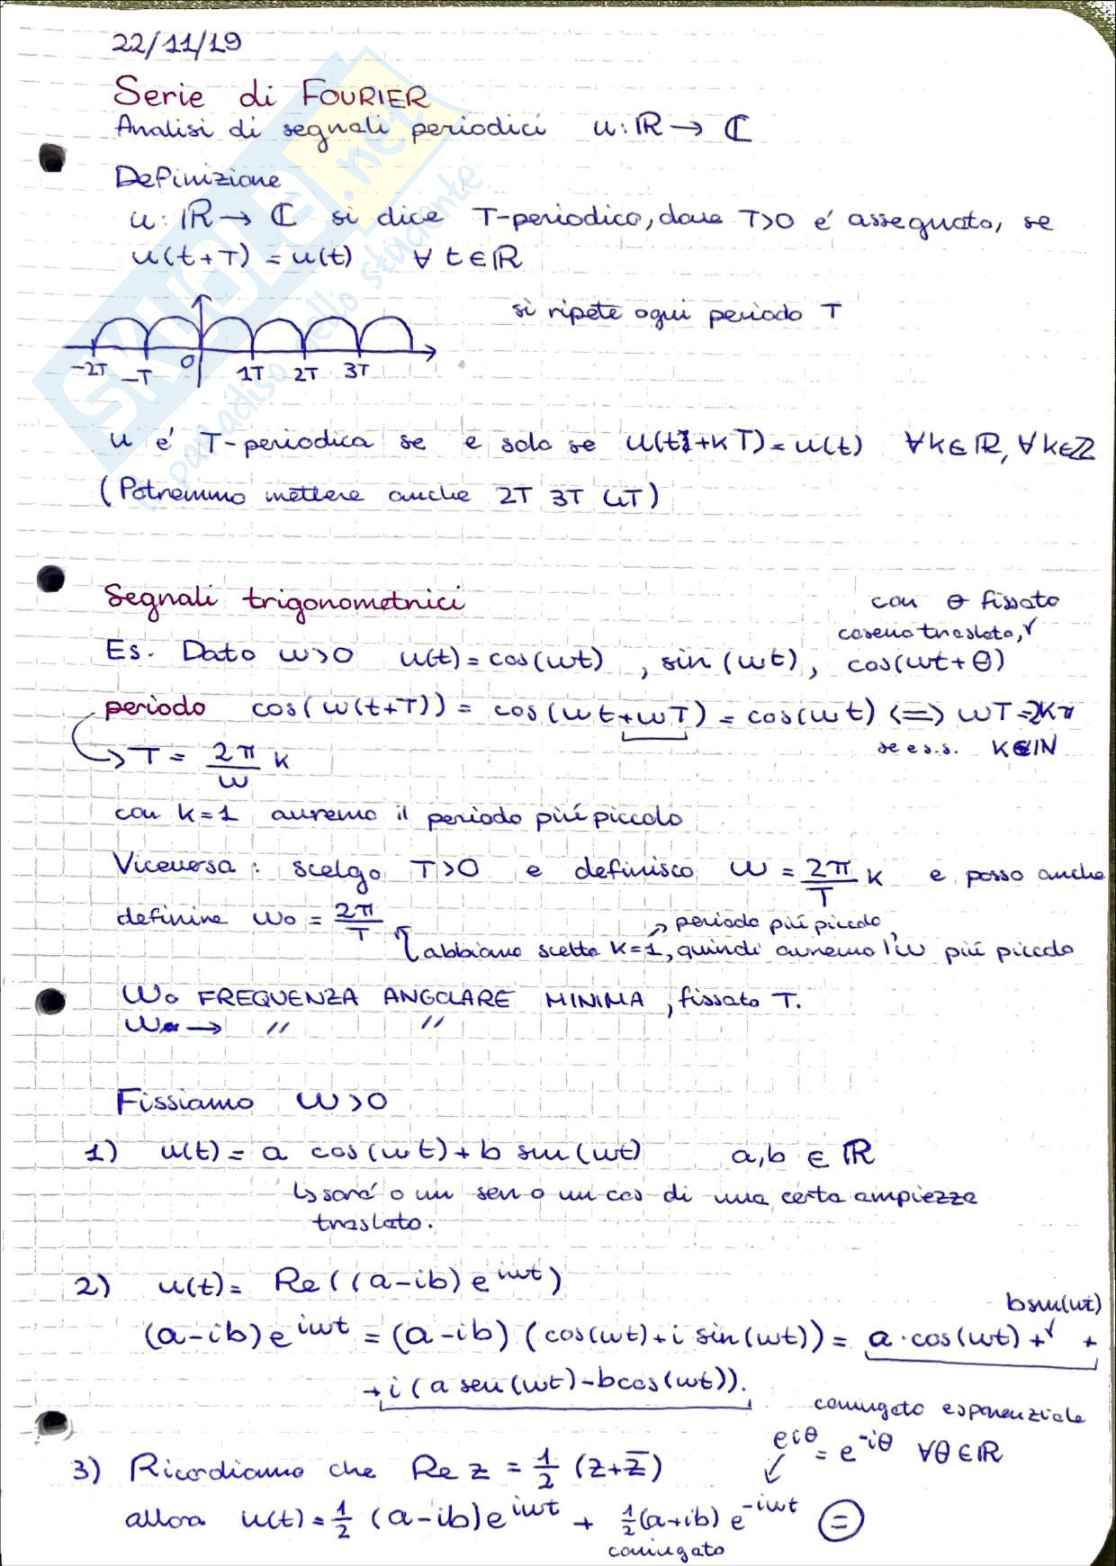 22/11/19
Serie di FOURIER
Analisi di segnali periodici u: ℝ → ℂ
Definizione
u: ℝ → ℂ si dice T-periodico, dove T>0 é assegnato, se
u(t+T) = u(t) ∀ t∈ℝ
si ripete ogni periodo T
-2T -T 0 1T 2T 3T
u é T-periodica se e solo se u(t+kT) = u(t) ∀k∈ℝ, ∀k∈ℤ
(Potremmo mettere anche 2T 3T 4T)
Segnali trigonometrici
con θ fissato
coseno traslato,
Es. Dato ω>0 u(t) = cos(ωt) , sin(ωt), cos(ωt+θ)
periodo cos(ω(t+T)) = cos(ωt+ωT) = cos(ωt) <=> ωT=2kπ
se e s.s. k∈ℕ
→ T = 2π/ω k
con k=1 avremo il periodo piú piccolo
Viceversa: scelgo T>0 e definisco ω = 2π/T k e posso anche
definire ω₀ = 2π/T
↗ periodo piú piccolo,
abbiamo scelto k=1, quindi avremo l'ω piú piccolo
ω₀ FREQUENZA ANGOLARE MINIMA, fissato T.
ω → " "
Fissiamo ω>0
1) u(t) = a cos(ωt) + b sin(ωt) a,b ∈ ℝ
↳ sará o un sen o un cos di una certa ampiezza
traslato.
2) u(t) = Re((a-ib) e^iωt)
(a-ib)e^iωt = (a-ib) (cos(ωt)+i sin(ωt)) = a·cos(ωt) + bsin(ωt) +
+i(a sen(ωt)-bcos(ωt)).
coniugato esponenziale
e^iθ = e^-iθ ∀θ∈ℝ
3) Ricordiamo che Re z = 1/2 (z+z̅)
allora u(t) = 1/2 (a-ib)e^iωt + 1/2(a+ib) e^-iωt =
coniugato
SKUOLA.net
paradiso dello studente